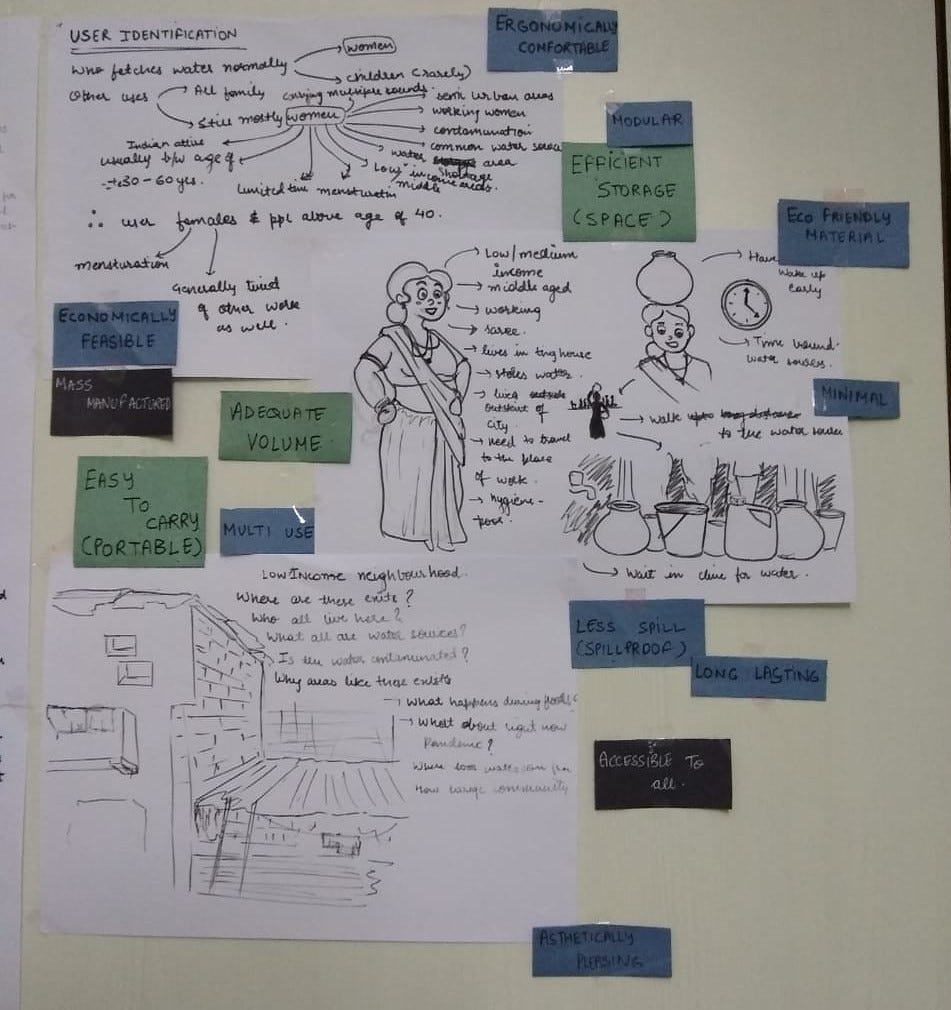 USER IDENTIFICATION
Who fetches water normally
women
children (rarely)
Other uses
All family
Still mostly women
carrying multiple rounds.
semi urban areas
working women
contamination
common water source
water shortage area
Low income areas.
middle
menstruatin
limited time
Indian attire
usually b/w age of
30-60 yrs.
∴ user females & ppl above age of 40.
mensturation
Generally tired
of other work
as well.
ERGONOMICALLY
CONFORTABLE
MODULAR
EFFICIENT
STORAGE
(SPACE)
ECO FRIENDLY
MATERIAL
ECONOMICALLY
FEASIBLE
MASS
MANUFACTURED
ADEQUATE
VOLUME
EASY
TO
CARRY
(PORTABLE)
MULTI USE
Low/medium
income
middle aged
working
saree.
lives in tny house
stoles water.
outskirt of
city.
need to travel
to the place
of work.
hygiene-
poor.
Have
Wake up
early
Time bound
water souses.
MINIMAL
walk
to the water
Wait in line for water.
Low Income neighbourhood.
Where are these exits?
Who all live here?
What all are water sources?
Is the water contaminated?
Why areas like these exists
What happens during floods?
What about right now
Pandemic?
How large community
LESS SPILL
(SPILLPROOF)
LONG LASTING
ACCESSIBLE TO
all.
ASTHETICALLY
PLEASING